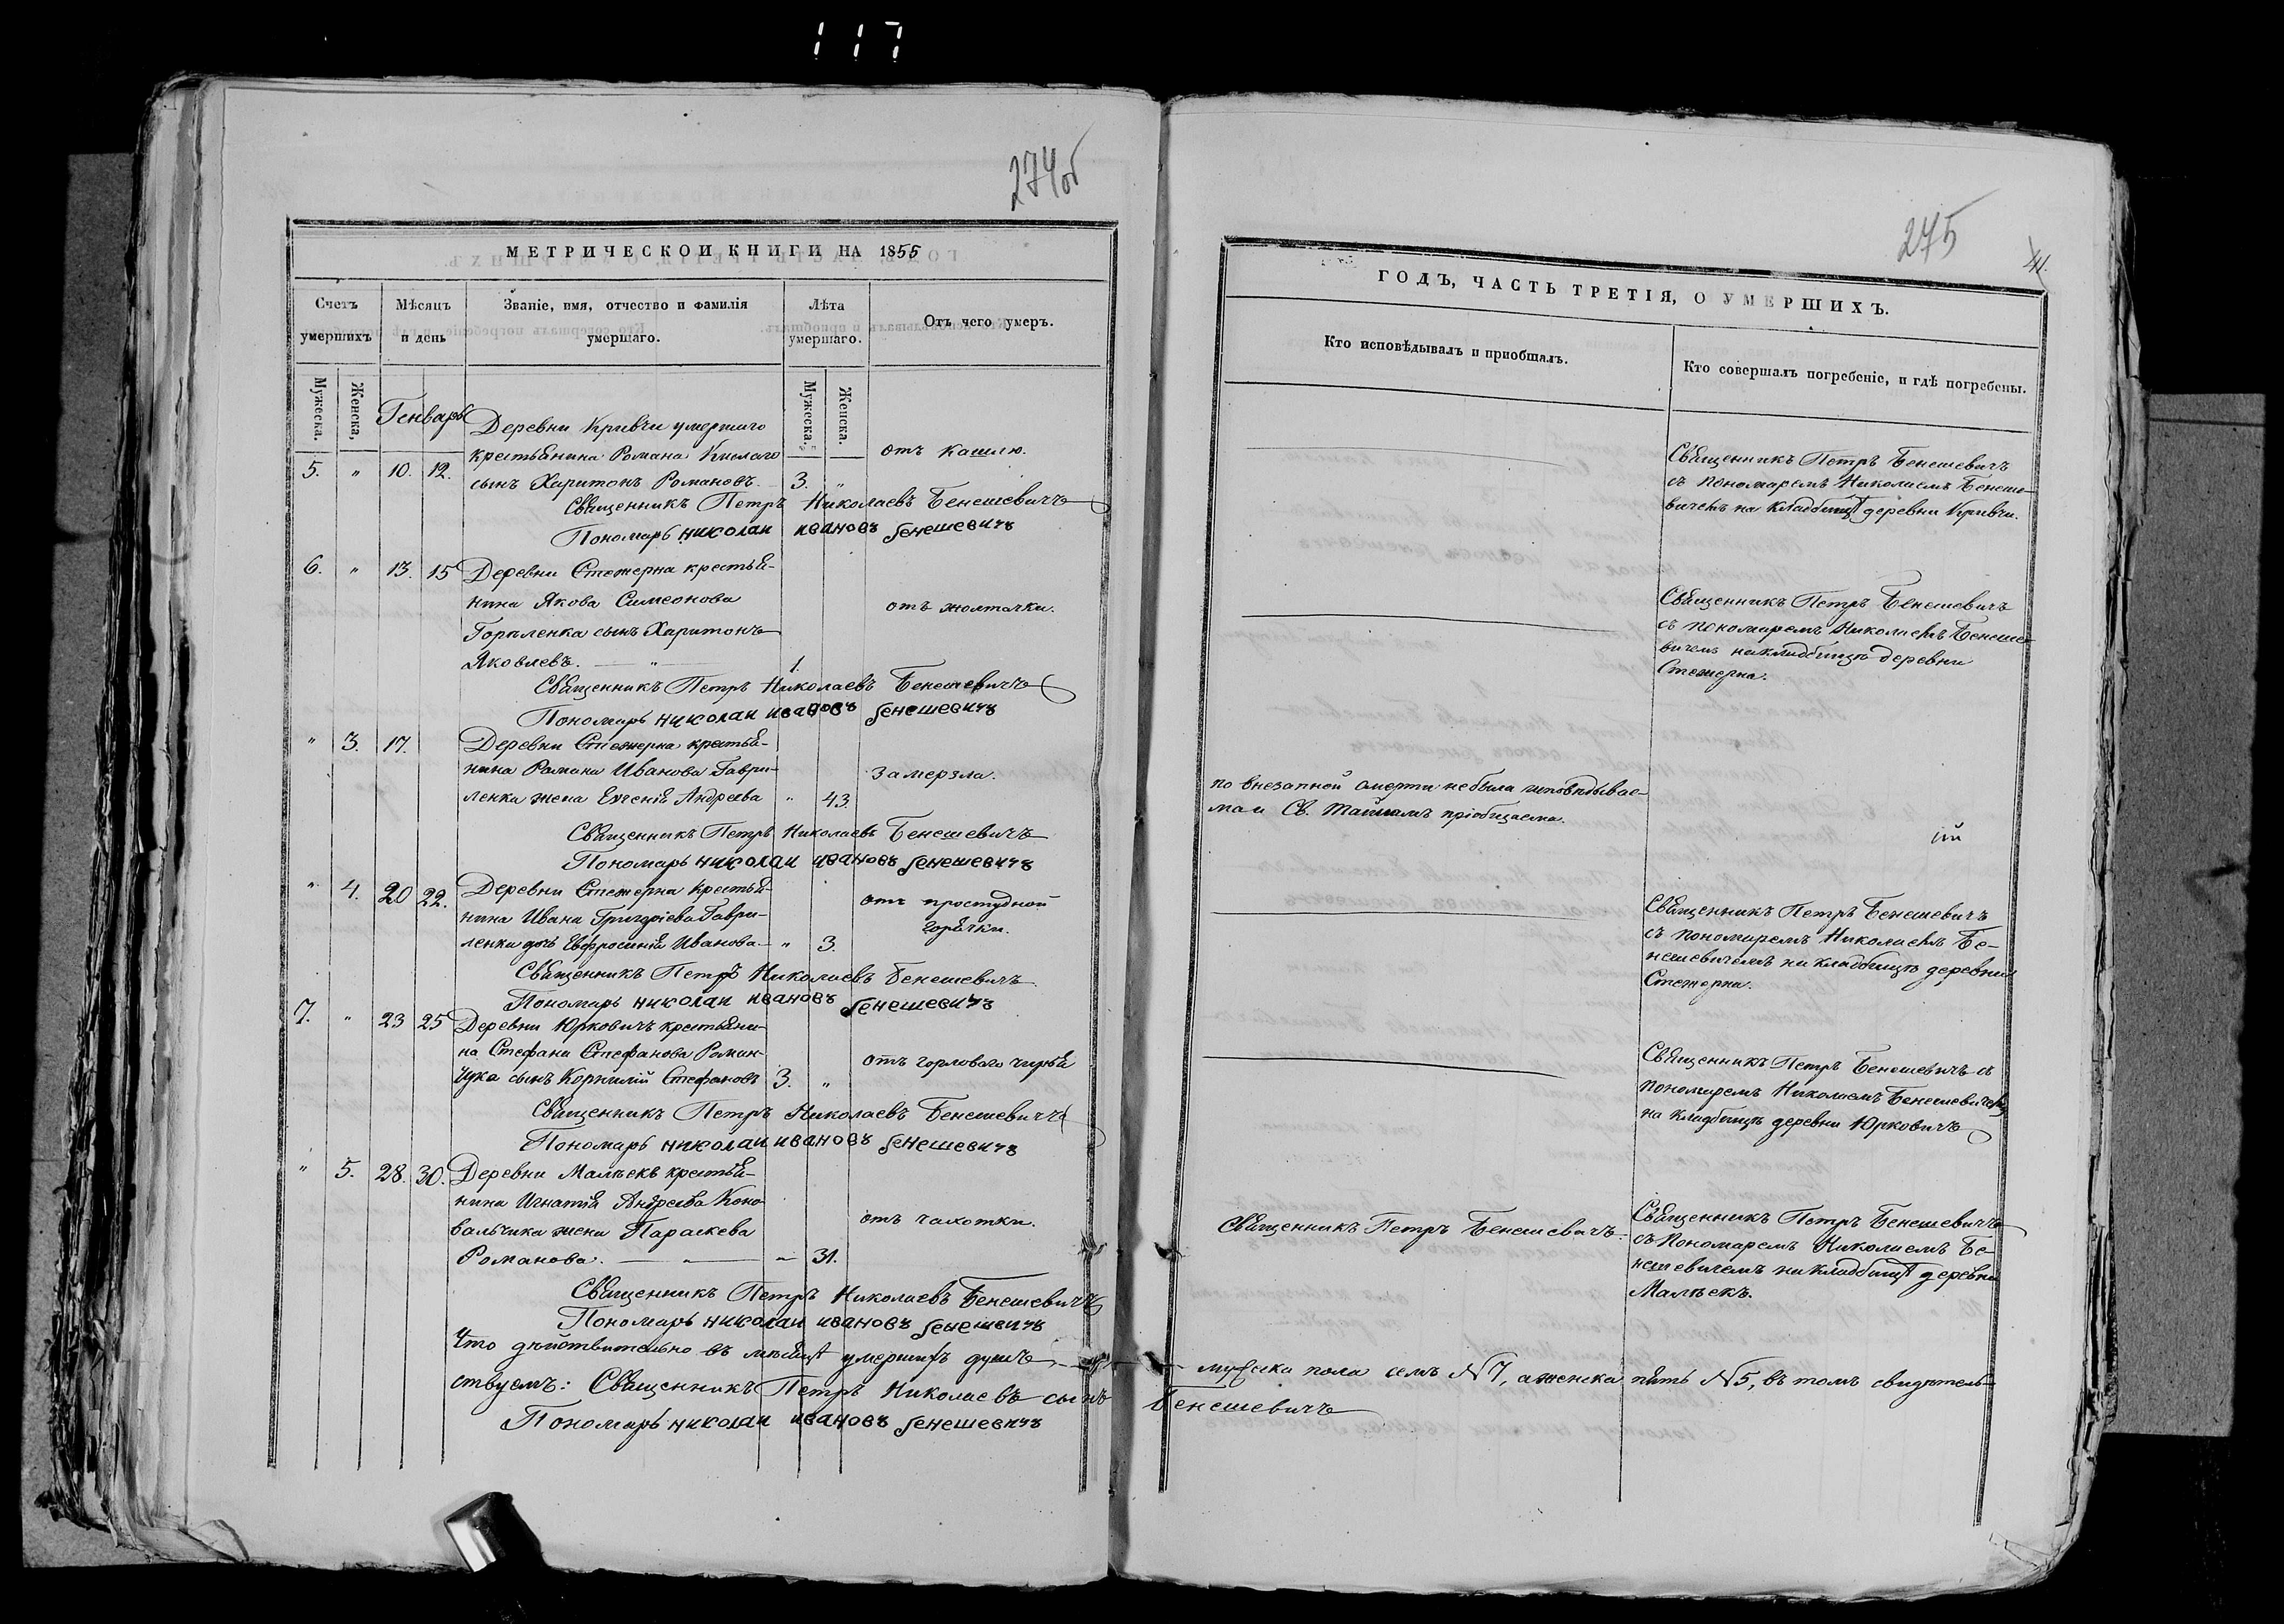 117
274об
МЕТРИЧЕСКОЙ КНИГИ НА 1855
Счетъ умершихъ
Мѣсяцъ и день
Званіе, имя, отчество и фамилія умершаго.
Лѣта умершаго.
Отъ чего умеръ.
Мужеска.
Женска.
Мужеска.
Женска.
Генварь
Деревни Кривчи умершаго
крестьянина Романа Кислаго
отъ кашлю.
5. " 10. 12. сынъ Харитонъ Романовъ. 3. "
Священникъ Петръ Николаевъ Бенешевичъ
Пономарь николаи ивановъ бенешевичъ
6. " 13. 15 Деревни Стежерна крестья-
нина Якова Симеонова
отъ жолтачки.
сынъ Харитонъ
Яковлевъ. — " — 1.
Священникъ Петръ Николаевъ Бенешевичъ
Пономарь николаи ивановъ бенешевичъ
" 3. 17. Деревни Стежерна крестья-
нина Романа Иванова Гаври-
замерзла.
ленка жена Евгенія Андреева " 43
Священникъ Петръ Николаевъ Бенешевичъ
Пономарь николаи ивановъ бенешевичъ
" 4. 20 22. Деревни Стежерна крестья-
нина Ивана Григоріева Гаври-
отъ простудной
горячки.
ленка дочь Евфросинія Иванова. — " 3.
Священникъ Петръ Николаевъ Бенешевичъ
Пономарь николаи ивановъ бенешевичъ
7. " 23 25 Деревни Юрковичъ крестьяни-
на Стефана Стефанова Роман-
отъ горловаго чирья
чука сынъ Корнилій Стефановъ 3. "
Священникъ Петръ Николаевъ Бенешевичъ
Пономарь николаи ивановъ бенешевичъ
" 5. 28. 30. Деревни Малѣекъ крестья-
нина Игнатія Андреева Коно-
вальчика жена Параскева
отъ чахотки.
Романова. — " — 31.
Священникъ Петръ Николаевъ Бенешевичъ
Пономарь николаи ивановъ бенешевичъ
Что дѣйствительно въ мѣсяцѣ умершихъ душъ —
ствуемъ: Священникъ Петръ Николаевъ сынъ
Пономарь николаи ивановъ бенешевичъ
275
41.
ГОДЪ, ЧАСТЬ ТРЕТІЯ, О УМЕРШИХЪ.
Кто исповѣдывалъ и пріобщалъ.
Кто совершалъ погребеніе, и гдѣ погребены.
Священникъ Петръ Бенешевичъ
съ пономаремъ Николаемъ Бенеше-
вичемъ на кладбищѣ деревни Кривчи.
Священникъ Петръ Бенешевичъ
съ пономаремъ Николаемъ Бенеше-
вичемъ на кладбищѣ деревни
Стежерна.
по внезапной смерти небыла исповѣдывае-
ма и Св. Тайнамъ пріобщаема.
Священникъ Петръ Бенешевичъ
съ пономаремъ Николаемъ Бе-
нешевичемъ на кладбищѣ деревни
Стежерна.
Священникъ Петръ Бенешевичъ съ
пономаремъ Николаемъ Бенешевичемъ
на кладбищѣ деревни Юрковичъ
Священникъ Петръ Бенешевичъ.
Священникъ Петръ Бенешевичъ
съ Пономаремъ Николаемъ Бе-
нешевичемъ на кладбищѣ деревни
Малѣекъ.
— мужеска пола семь №7, а женска пять №5, въ томъ свидѣтель-
Бенешевичъ